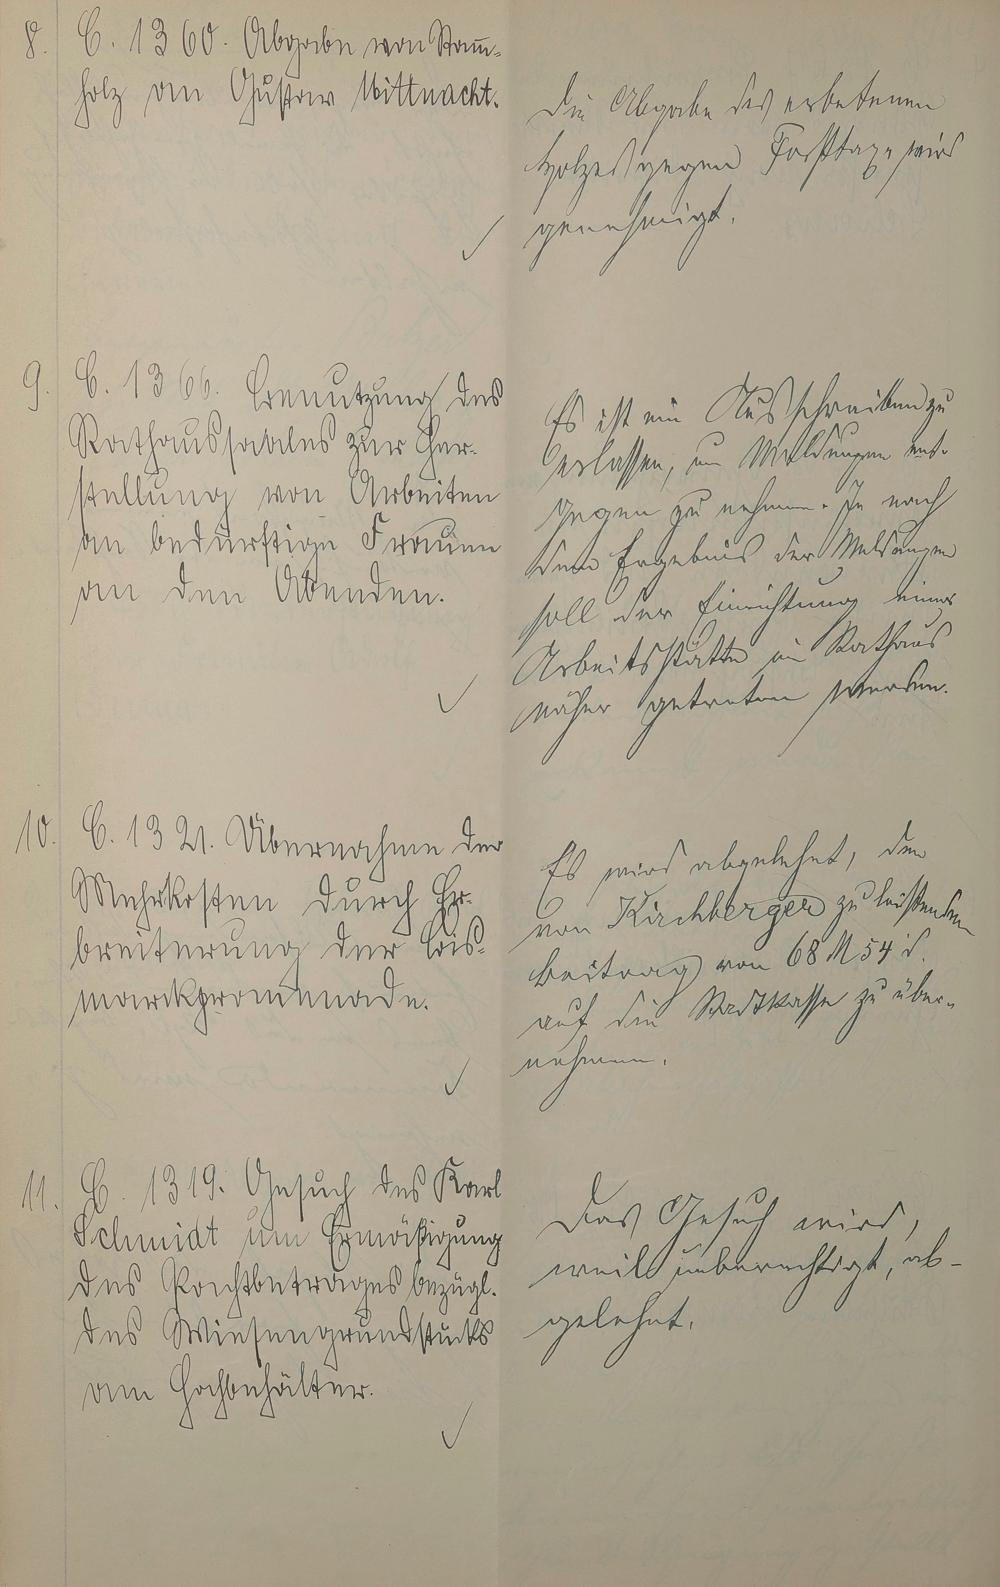 8. C. 1360. Abgabe von Stamm-
holz an Gustav Mittnacht.
Die Abgabe des erbetenen
Holzes gegen Forsttaxe wird
genehmigt.
9. C. 1366. Benutzung des
Rathaussaales zur Her-
stellung von Arbeiten
an bedürftige Frauen
an den Abenden.
Es ist ein Ausschreiben zu
erlassen, um Meldungen ent-
gegen zu nehmen. Je nach
dem Ergebnis der Meldungen
soll der Einrichtung einer
Arbeitsstätte im Rathaus
näher getreten werden.
10. C. 1321. Übernahme der
Mehrkosten durch Ver-
breiterung der Bis-
marckpromenade.
Es wird abgelehnt, den
von Kirchberger zu leistenden
Beitrag von 68 M 54 d.
auf die Stadtkasse zu über-
nehmen.
11. C. 1319. Gesuch des Karl
Schmidt um Ermäßigung
des Pachtbetrages bezügl.
des Wiesengrundstücks
am Hochbehälter.
Das Gesuch wird,
weil unberechtigt, ab-
gelehnt.